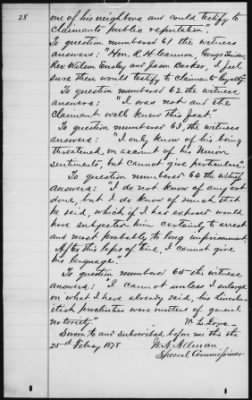 28
one of his neighbors and could testify to
claimants public reputation".
To question numbered 61 the witness
answers: "Hon. R. H. Cannon, George
Rev Wilson Ensley and Jason Barker. I feel
sure them would testify to claimants loyalty
To question numbered 62 the witness
answers: "I was not and the
claimant well knew this fact."
To question numbered 63, the witness
answers: "I only know of his being
threatened, on account of his Union
sentiments, but cannot give particulars".
To question numbered 64 the witness
answers; "I do not know of any act
done, but I do know of much that
he said, which if I had exposed would
have subjected him certainly to arrest
and most probably to long imprisonment
After this lapse of time, I cannot give
his language."
To question numbered 65 the witness
answers: "I cannot unless I enlarge
on what I have already said, his Lincoln
itish proclivities were matters of general
notoriety"
W. L.
Sworn to and subscribed before me this the
25th February 1878
W. H. Allman
Special Commissioner